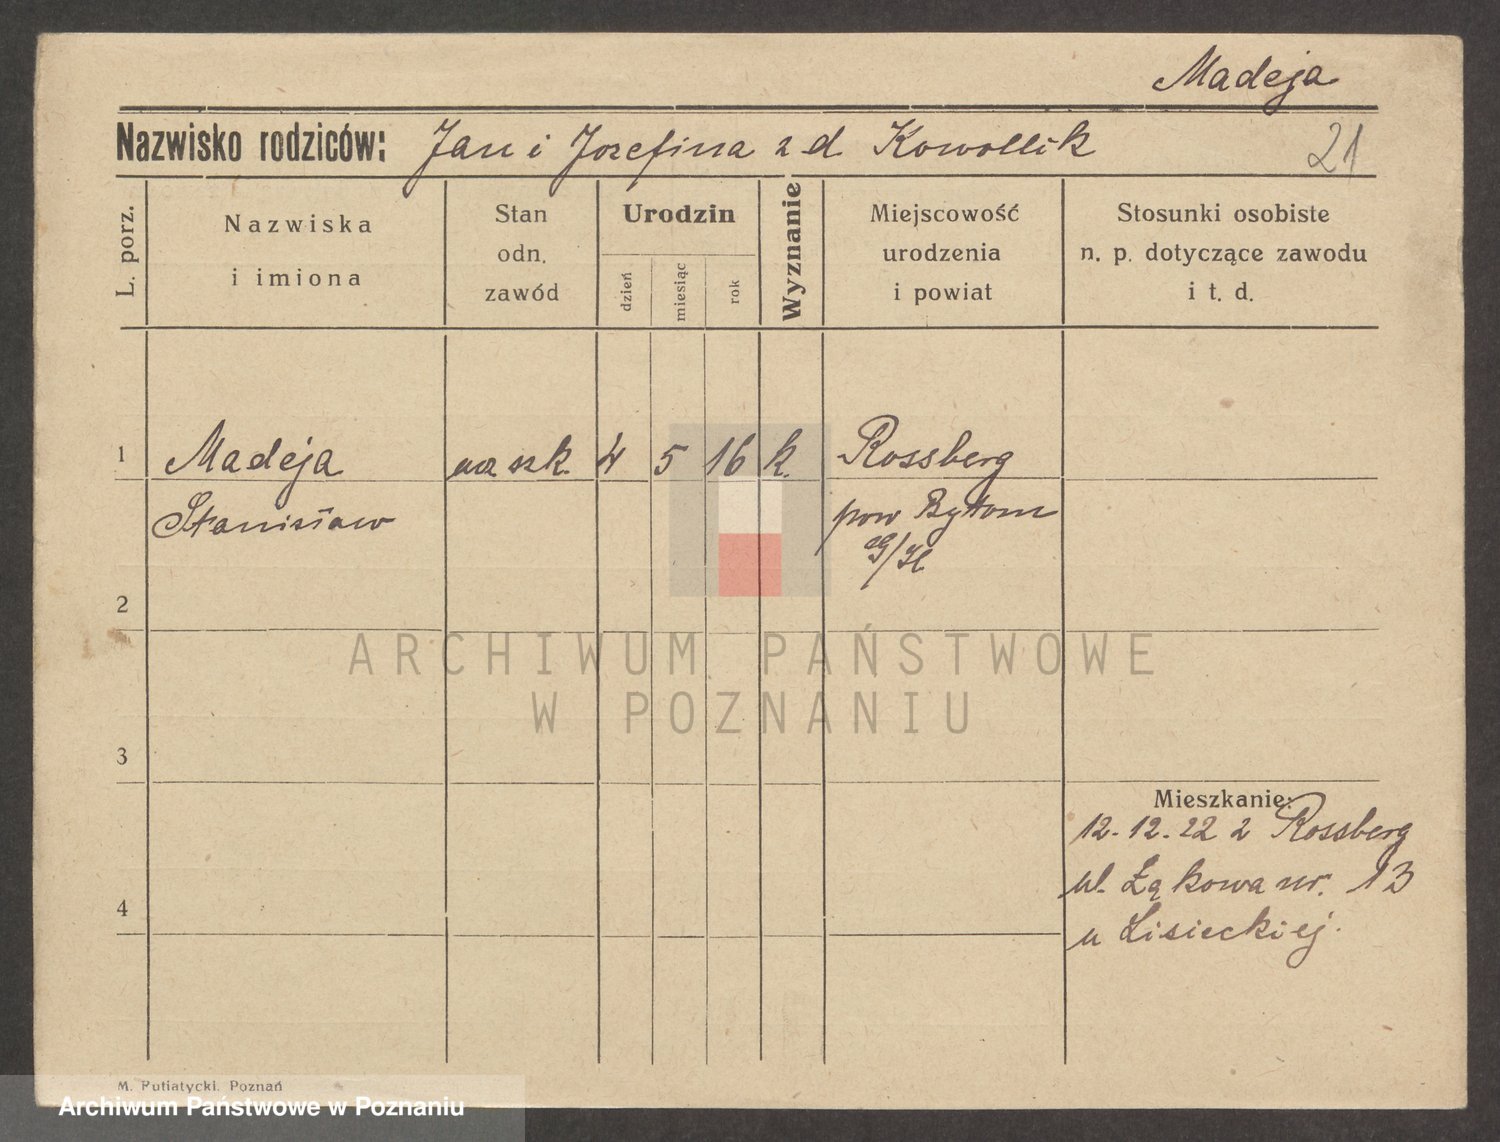 Madeja
Nazwisko rodziców: Jan i Jozefina z d. Kowollik
21
L. porz.
Nazwiska
i imiona
Stan
odn.
zawód
Urodzin
dzień
miesiąc
rok
Wyznanie
Miejscowość
urodzenia
i powiat
Stosunki osobiste
n. p. dotyczące zawodu
i t. d.
1 Madeja ucz szk. 4 5 16 k. Rossberg
Stanisław pow Bytom
2
ARCHIWUM PAŃSTWOWE
W POZNANIU
3
Mieszkanie:
12.12.22 z Rossberg
ul. Łąkowa nr. 13
4
u Lisieckiej.
M. Putiatycki. Poznań
Archiwum Państwowe w Poznaniu